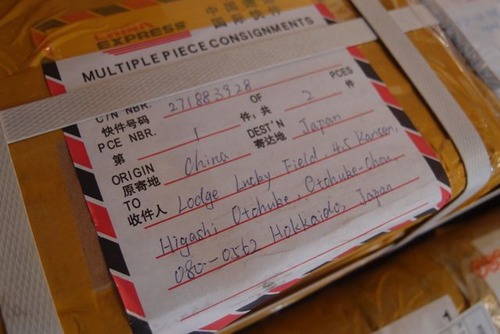 中国
国际快件
CHINA
EXPRESS
MULTIPLE PIECE CONSIGNMENTS
C/N NBR. 271883928
快件号码
PCE NBR. 1 OF 2 PCES
第 件，共 件
ORIGIN China DEST'N Japan
原寄地 寄达地
TO Lodge Lucky Field, 45 Kansen,
收件人
Higashi Otohube, Otohube-Chou
080-0562 Hokkaido, Japan
1